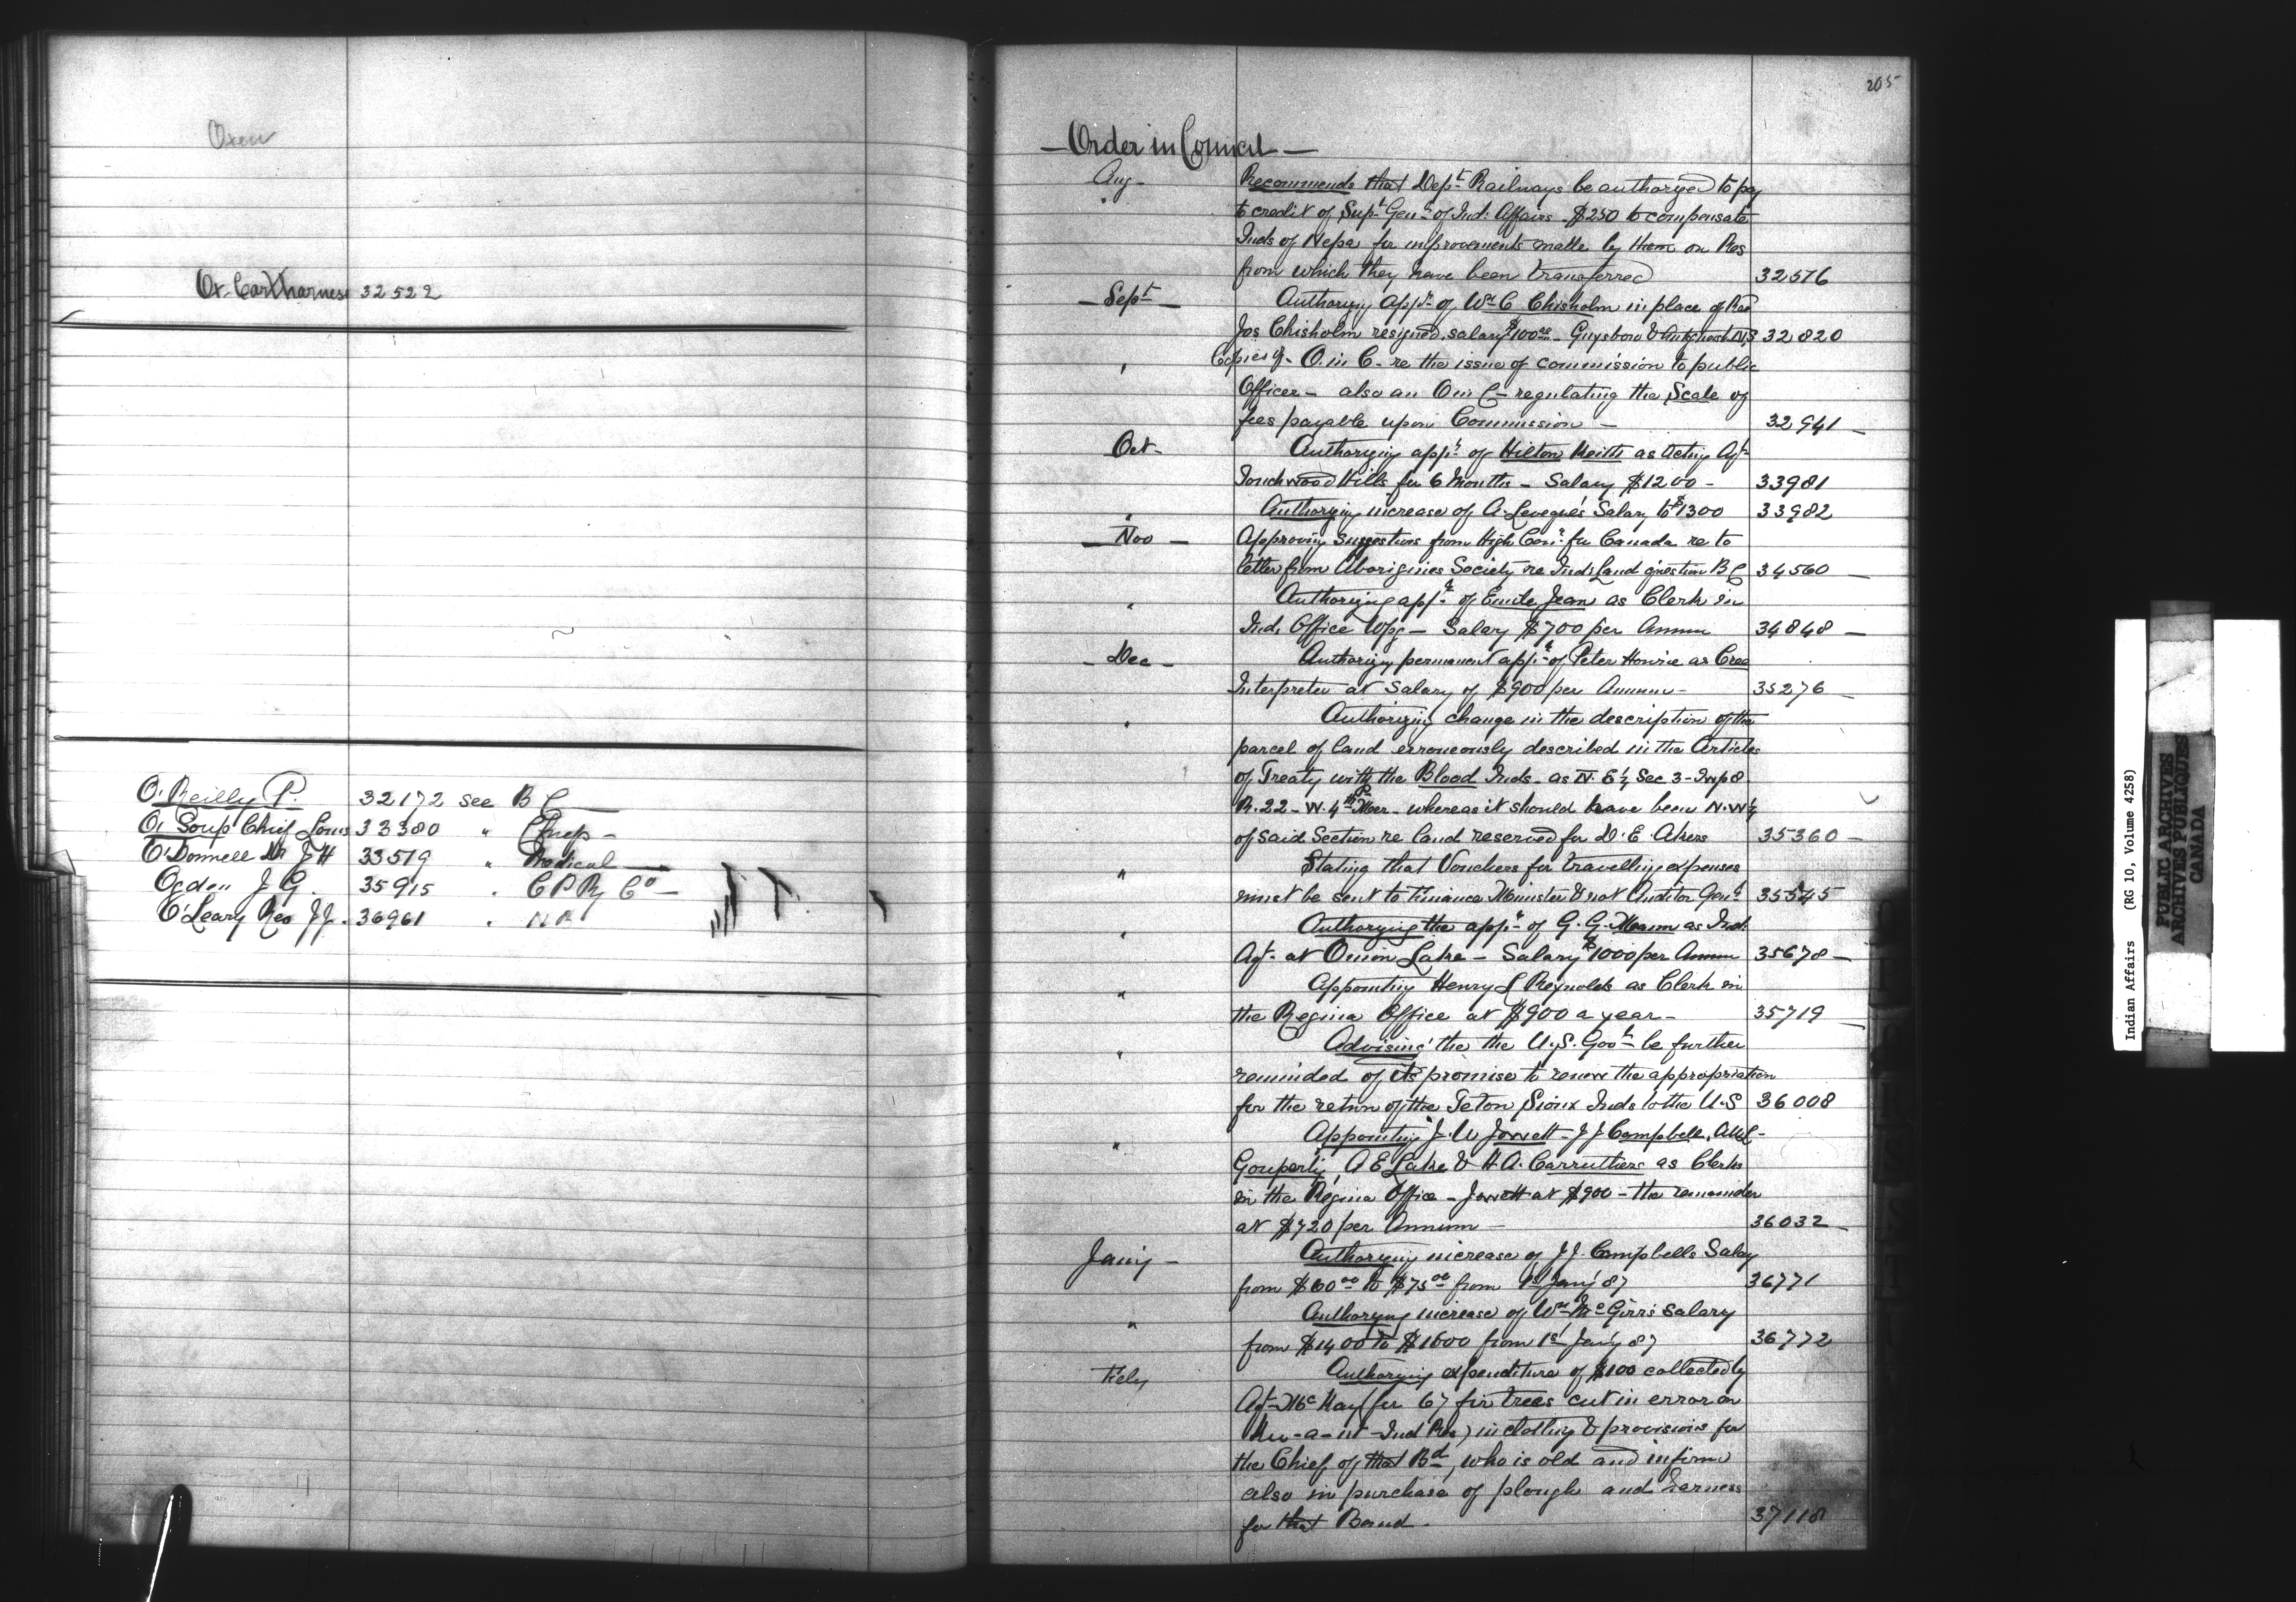 Oxen
Ox Cart harness 32522
O'Reilly P. 32172 see B C
O, Soup Chief Louis 33380 "
O'Donnell Dr J H 33519 " Medical
Ogden J G. 35915 " C P Ry Co
O'Leary Rev J J. 36961 " N B
205
Order in Council
Aug. Recommends that Dept Railways be authorized to pay
to credit of Supt Genl of Ind: Affairs $250 to compensate
Inds of Nepa for improvements made by them on Res
from which they have been transferred 32576
Sept Authorizg appt of Wm C Chisholm in place of Rev
Jos Chisholm resigned, salary $100.00 Guysboro & Antigonish N.S 32820
" Copies of O. in C. re the issue of commission to public
Officer also an O in C regulating the Scale of
fees payable upon Commission 32941
Oct Authorizing appt of Hilton Keith as Acting Agt
Touchwood Hills for 6 Months Salary $1200 33981
" Authorizing increase of A. Leveque's Salary to $1300 33982
Nov Approving suggestions from High Comr for Canada re to
letter from Aborigines Society re Inds Land question B C 34560
" Authorizing appt of Emile Jean as Clerk in
Ind. Office Wpg Salary $700 per Annum 34848
Dec Authorizg permanent appt of Peter Hourie as Cree
Interpreter at Salary of $900 per Annum 35276
" Authorizing change in the description of the
parcel of land erroneously described in the Articles
of Treaty with the Blood Inds as N. E ¼ Sec 3 - Twp 8
R. 22 - W. 4th P Mer - whereas it should have been N. W ¼
of said Section re land reserved for D. E. Akers 35360
" Stating that Vouchers for travelling expenses
must be sent to Finance Minister & not Auditor Genl 35545
" Authorizing the appt of G. G. Mann as Ind.
Agt at Onion Lake - Salary $1000 per Annum 35678
" Appointing Henry L Reynolds as Clerk in
the Regina Office at $900 a year 35719
" Advising the the U.S. Govt be further
reminded of its promise to renew the appropriation
for the return of the Teton Sioux Inds to the U.S 36008
" Appointing J. W Jowett - J J Campbell,
A E Lake & H A. Carruthers as Clerks
in the Regina Office - Jowett at $900 - the remainder
at $720 per Annum 36032
Jan'y Authorizing increase of J J. Campbells Salary
from $60.00 to $75.00 from 1st Jan'y 87 36771
" Authorizing increase of Wm McGirr's salary
from $1400 to $1600 from 1st Jan'y 87 36772
Feby Authorizing expenditure of $100 collected by
Agt McKay (for 67 fir trees cut in error on
Ind Res) in clothing & provisions for
the Chief of that Bd, who is old and infirm
also in purchase of plough and harness
for that Band. 37118
Indian Affairs (RG 10, Volume 4258)
PUBLIC ARCHIVES
ARCHIVES PUBLIQUES
CANADA